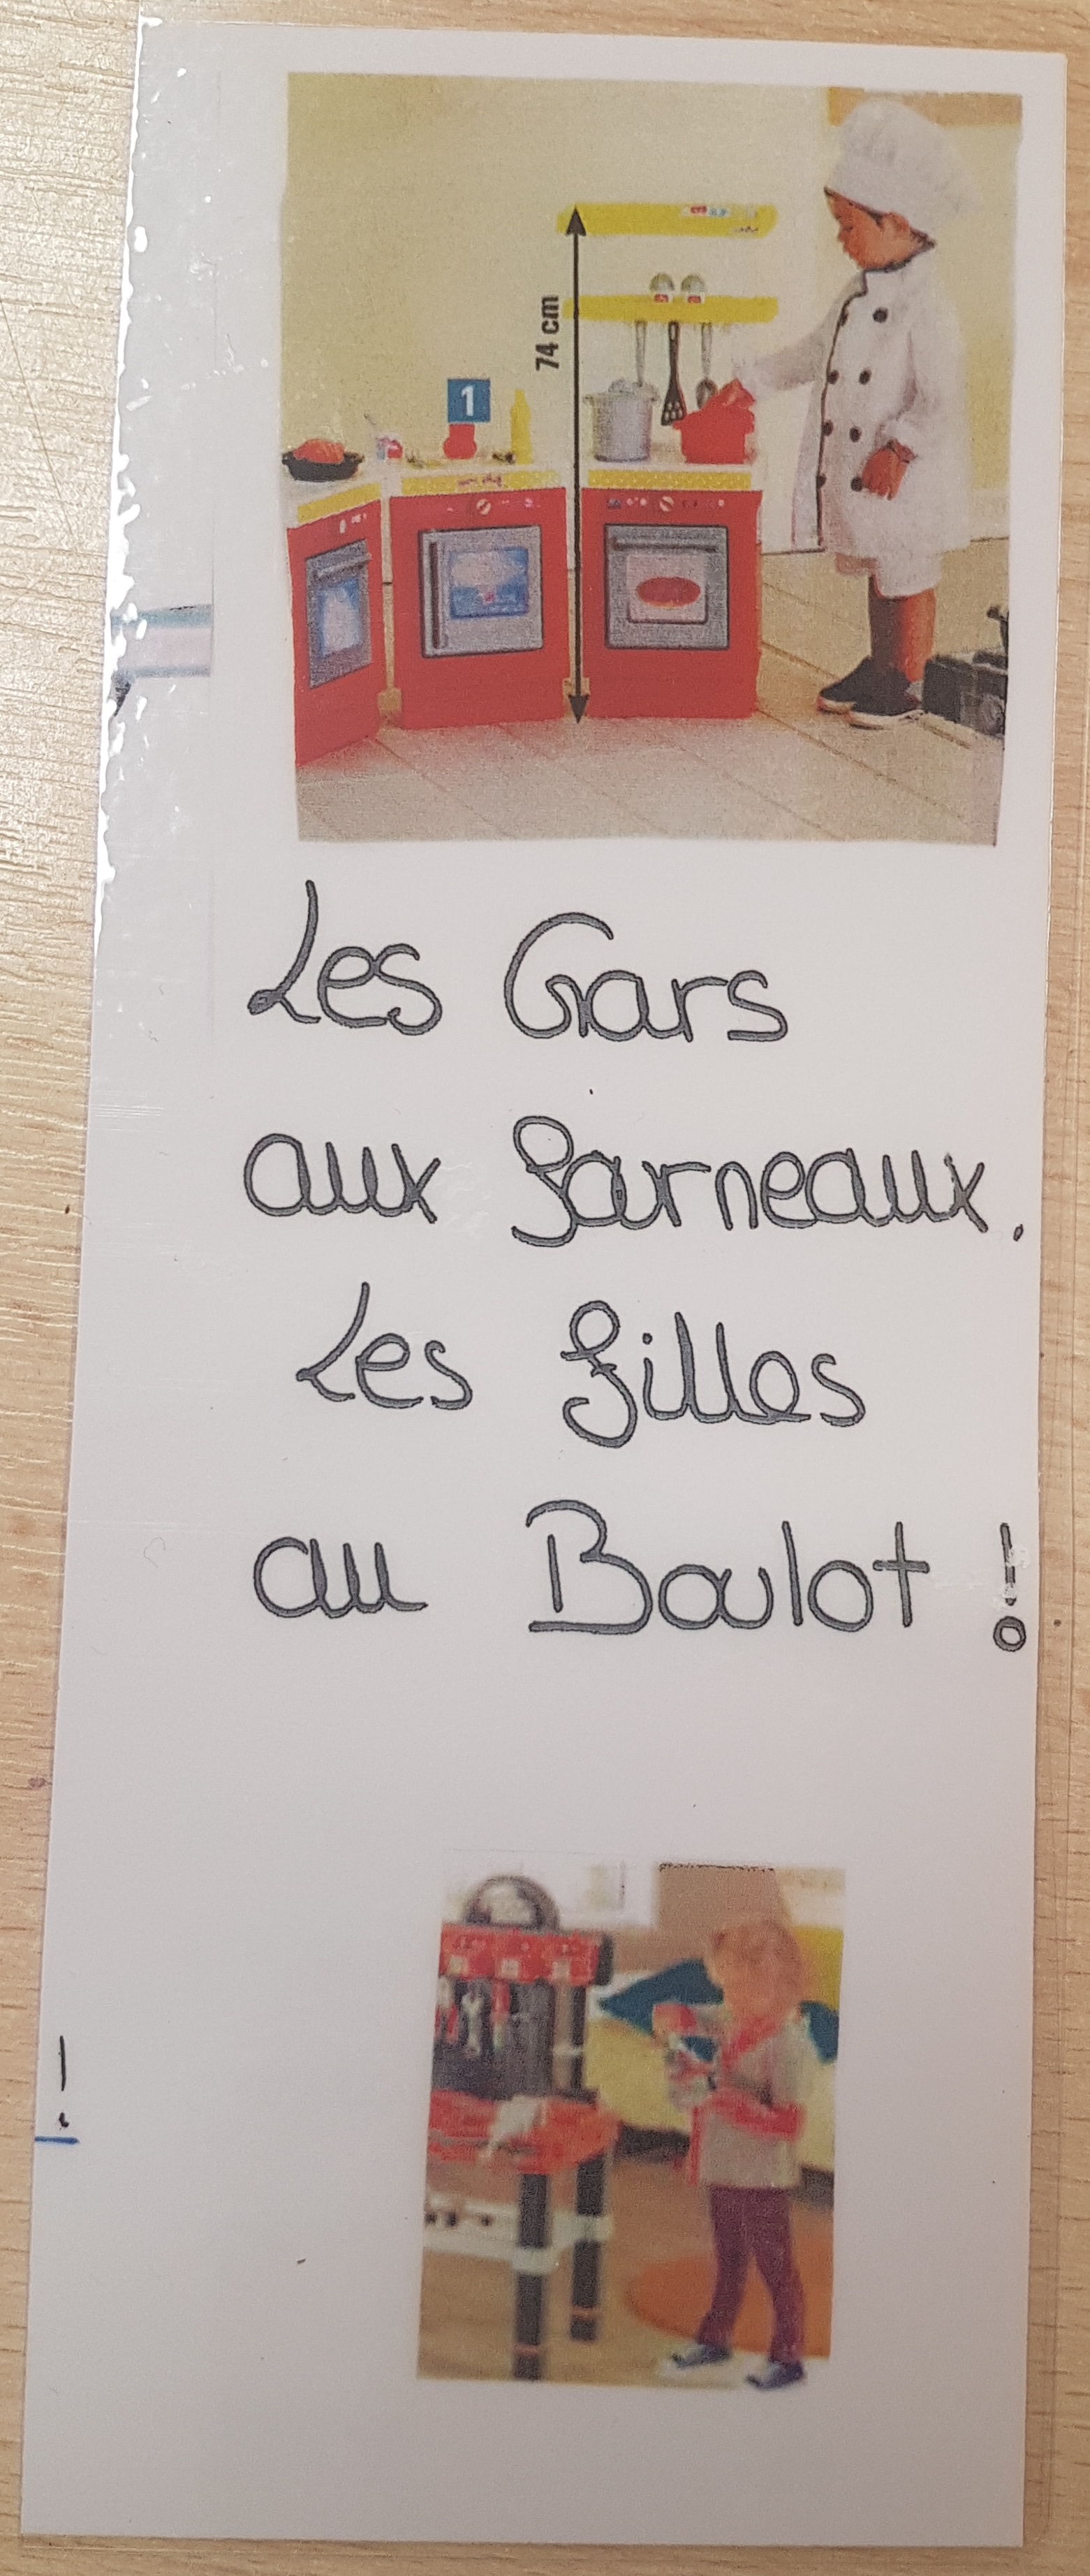 74 cm
1
Les Gars
aux farneaux.
Les filles
au Boulot !